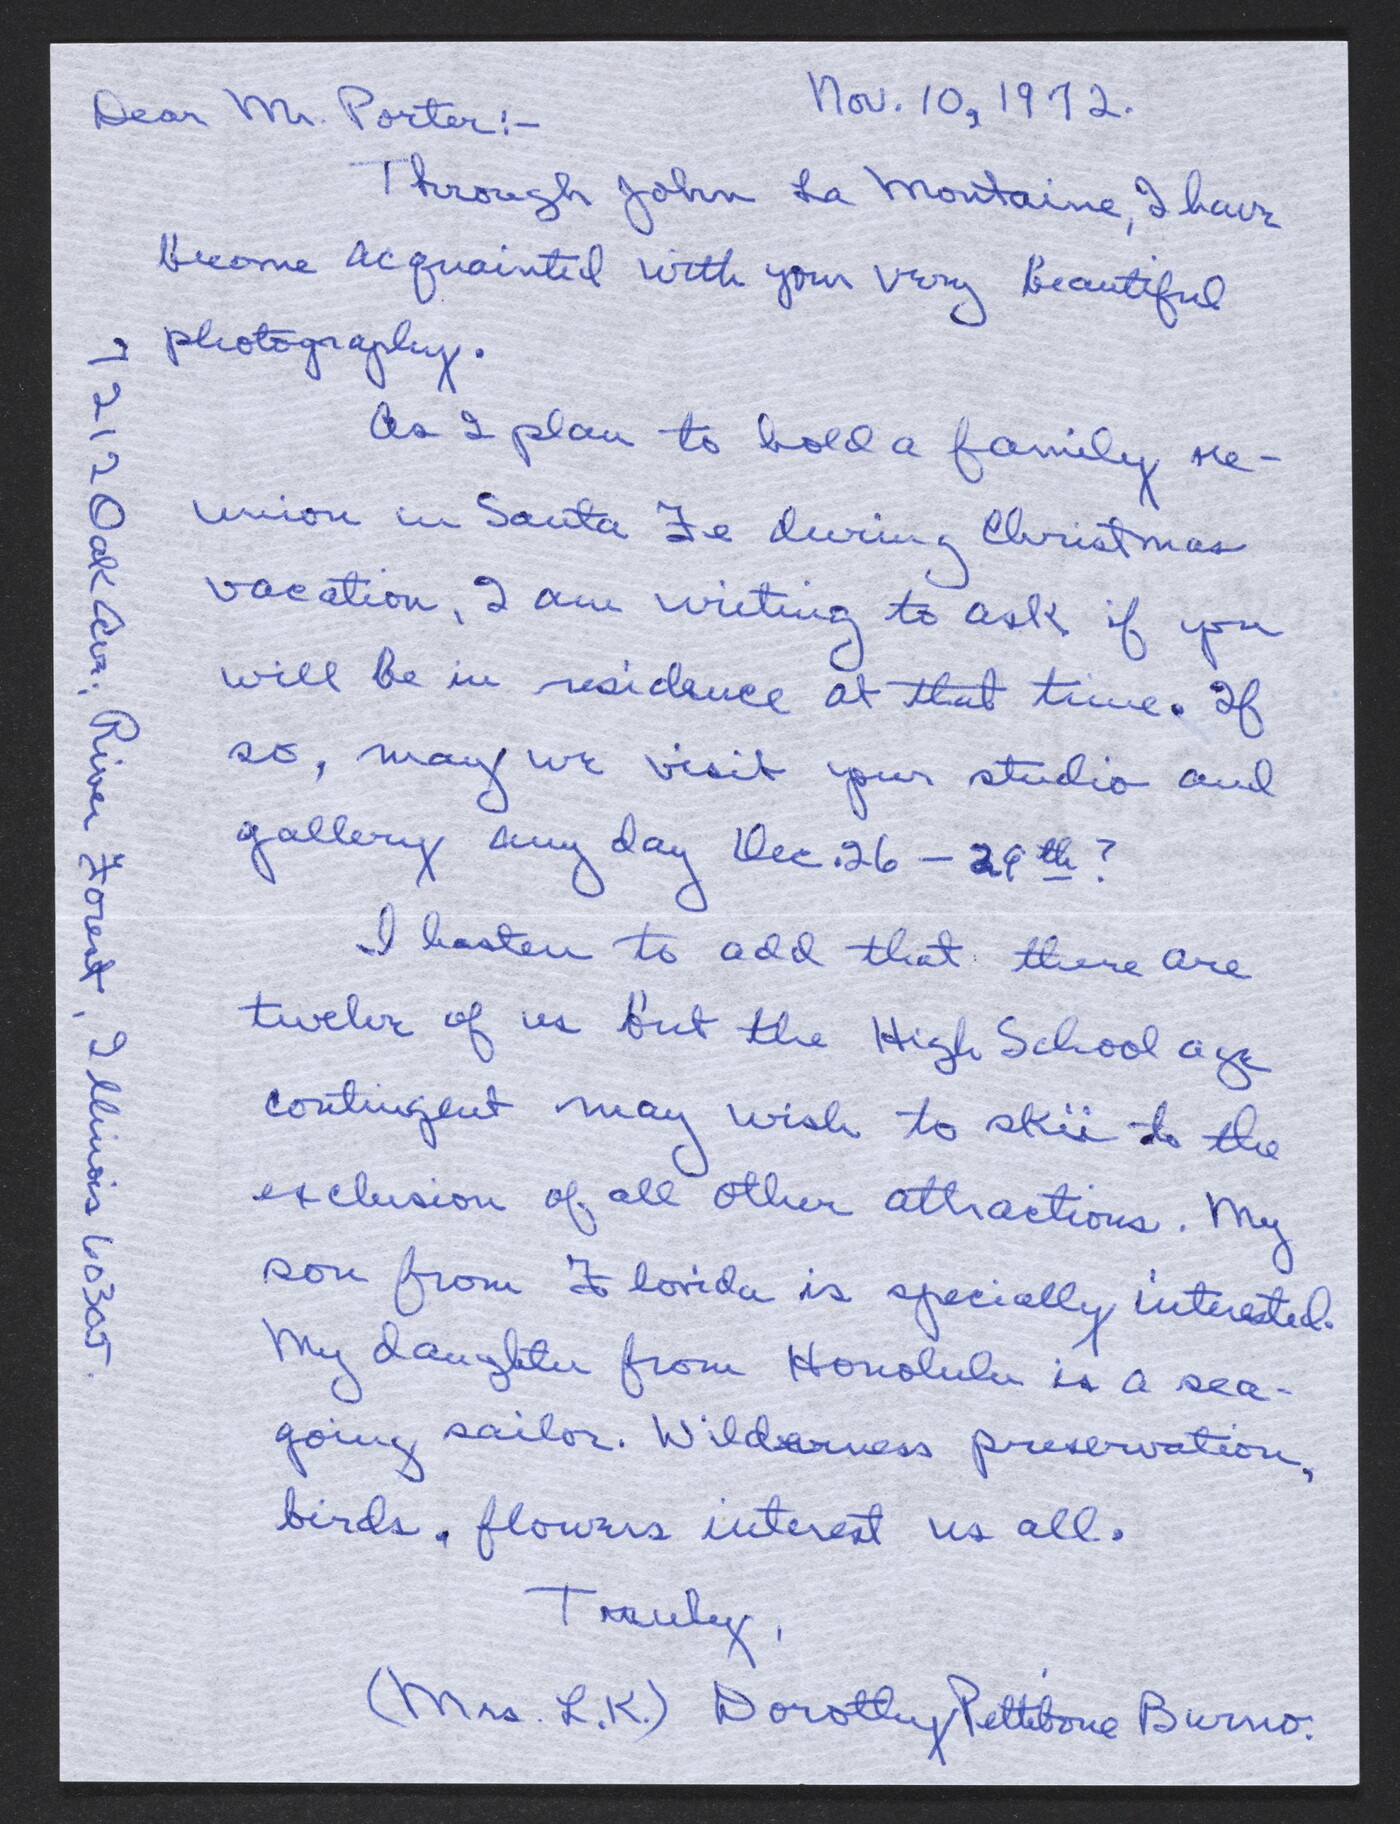 Nov. 10, 1972.
Dear Mr. Porter:-
Through John La Montaine, I have
become acquainted with your very beautiful
photography.
As I plan to hold a family re-
union in Santa Fe during Christmas
vacation, I am writing to ask if you
will be in residence at that time. If
so, may we visit your studio and
gallery any day Dec. 26 - 29th?
I hasten to add that there are
twelve of us but the High School age
contingent may wish to skii to the
exclusion of all other attractions. My
son from Florida is specially interested.
My daughter from Honolulu is a sea-
going sailor. Wilderness preservation,
birds, flowers interest us all.
Truly,
(Mrs. L.K.) Dorothy Pettibone Burno.
7212 Oak Ave; River Forest, Illinois 60305.